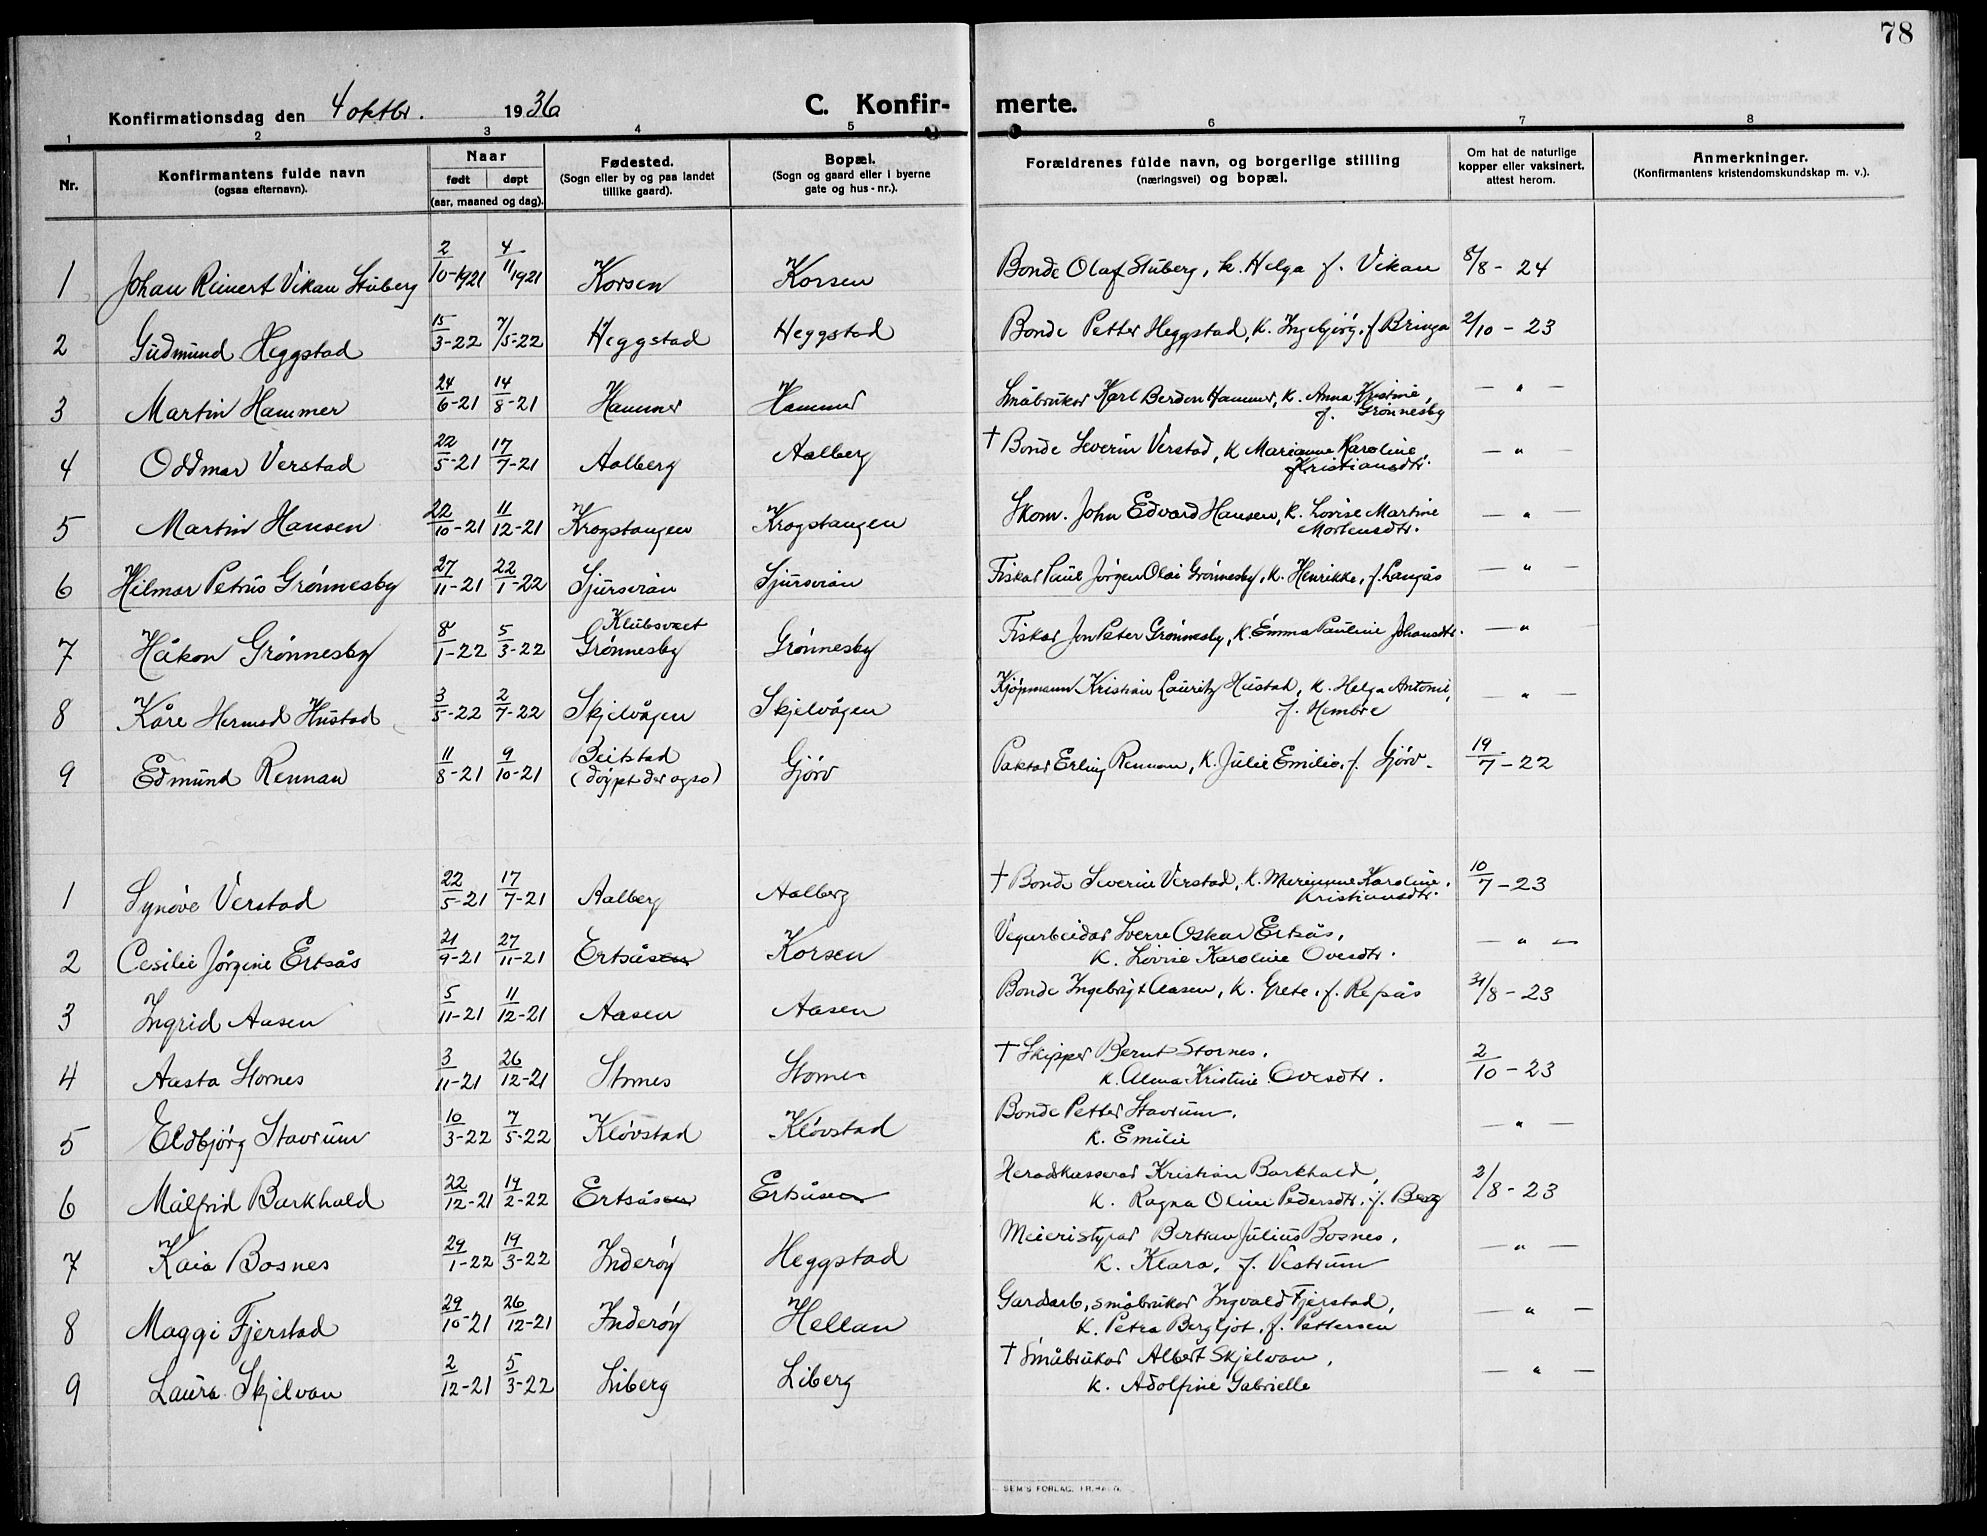 78
Konfirmationsdag den 4 oktbr. 1936
C. Konfirmerte.
1 2 3 4 5 6 7 8
Nr.
Konfirmantens fulde navn
(ogsaa efternavn).
Naar
født døpt
(aar, maaned og dag).
Fødested.
(Sogn eller by og paa landet
tillike gaard).
Bopæl.
(Sogn og gaard eller i byerne
gate og hus-nr.).
Forældrenes fulde navn, og borgerlige stilling
(næringsvei) og bopæl.
Om hat de naturlige
kopper eller vaksinert,
attest herom.
Anmerkninger.
(Konfirmantens kristendomskundskap m. v.).
1 Johan Reinert Vikan Stuberg 2/10-1921 4/11 1921 Korsen Korsen Bonde Olaf Stuberg, k. Helga f. Vikan 8/8-24
2 Gudmund Heggstad 15/3-22 7/5-22 Heggstad Heggstad Bonde Petter Heggstad, k. Ingebjörg, f Bringa 2/10-23
3 Martin Hammer 24/6-21 14/8-21 Hammer Hammer Småbrukar Karl Berdon Hammer, k. Anna Kristine,
f. Grönnesby — " —
4 Oddmar Verstad 22/5-21 17/7-21 Aalberg Aalberg † Bonde Severin Verstad, k Marianne Karoline,
Kristiansdtr. — " —
5 Martin Hansen 22/10-21 11/12-21 Krogstangen Krogstangen Skom. John Edvard Hansen, k. Lovise Martine
Mortensdtr. — " —
6 Hilmar Petrus Grönnesby 27/11-21 22/1-22 Sjursvián Sjursvián Fiskar Paul Jörgen Olai Grönnesby, k. Henrikke, f. Langås — " —
7 Håkon Grönnesby 8/1-22 5/3-22 Klubsvæt
Grönnesby Grönnesby Fiskar Jon Peter Grönnesby, k. Emma Pauline Johansdtr. — " —
8 Kåre Hermod Hustad 3/5-22 2/7-22 Skjelvågen Skjelvågen Kjöpmann Kristian Lauritz Hustad, k. Helga Antonie,
f. Hembre — " —
9 Edmund Rennan 11/8-21 9/10-21 Beitstad
(döypt der ogso) Gjörv Paktar Erling Rennan, k. Julie Emilie, f. Gjörv. 19/7-22
1 Synöve Verstad 22/5-21 17/7-21 Aalberg Aalberg † Bonde Severin Verstad, k. Marianne Karoline.
Kristiansdtr. 10/7-23
2 Cesilie Jörgine Ertsås 21/9-21 27/11-21 Ertsåsen Korsen Vegarbeidar Sverre Oskar Ertsås,
k. Lovise Karoline Ovesdtr. — " —
3 Ingrid Aasen 5/11-21 11/12-21 Aasen Aasen Bonde Ingebrigt Aasen, k. Grete, f. Repås 31/8-23
4 Aasta Stornes 3/11-21 26/12-21 Stornes Stornes † Skipper Bernt Stornes.
k. Alma Kristine Ovesdtr. 2/10-23
5 Eldbjörg Stavrum 10/3-22 7/5-22 Klövstad Klövstad Bonde Petter Stavrum.
k. Emilie — " —
6 Målfrid Barkhald 22/12-21 14/2-22 Ertsåsen Ertsåsen Heradskasserar Kristian Barkhald,
k. Ragna Oline Pedersdtr. f. Berg 2/8-23
7 Kaia Bosnes 29/1-22 19/3-22 Inderöy Heggstad Meieristyrar Bertran Julius Bosnes.
k. Klara, f. Vestrum — " —
8 Maggi Fjerstad 29/10-21 26/12-21 Inderöy Hellan Gardarb, småbrukar Ingvald Fjerstad,
k. Petra Bergljot, f. Pettersen — " —
9 Laura Skjelvan 2/12-21 5/3-22 Liberg Liberg † Småbrukar Albert Skjelvan,
k. Adolfine Gabrielle — " —
SEM'S FORLAG.